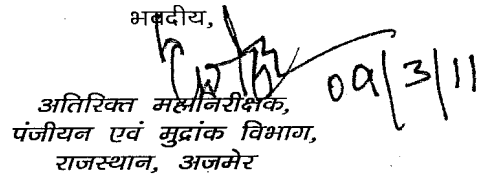 भवदीय,
09/3/11
अतिरिक्त महानिरीक्षक,
पंजीयन एवं मुद्रांक विभाग,
राजस्थान, अजमेर